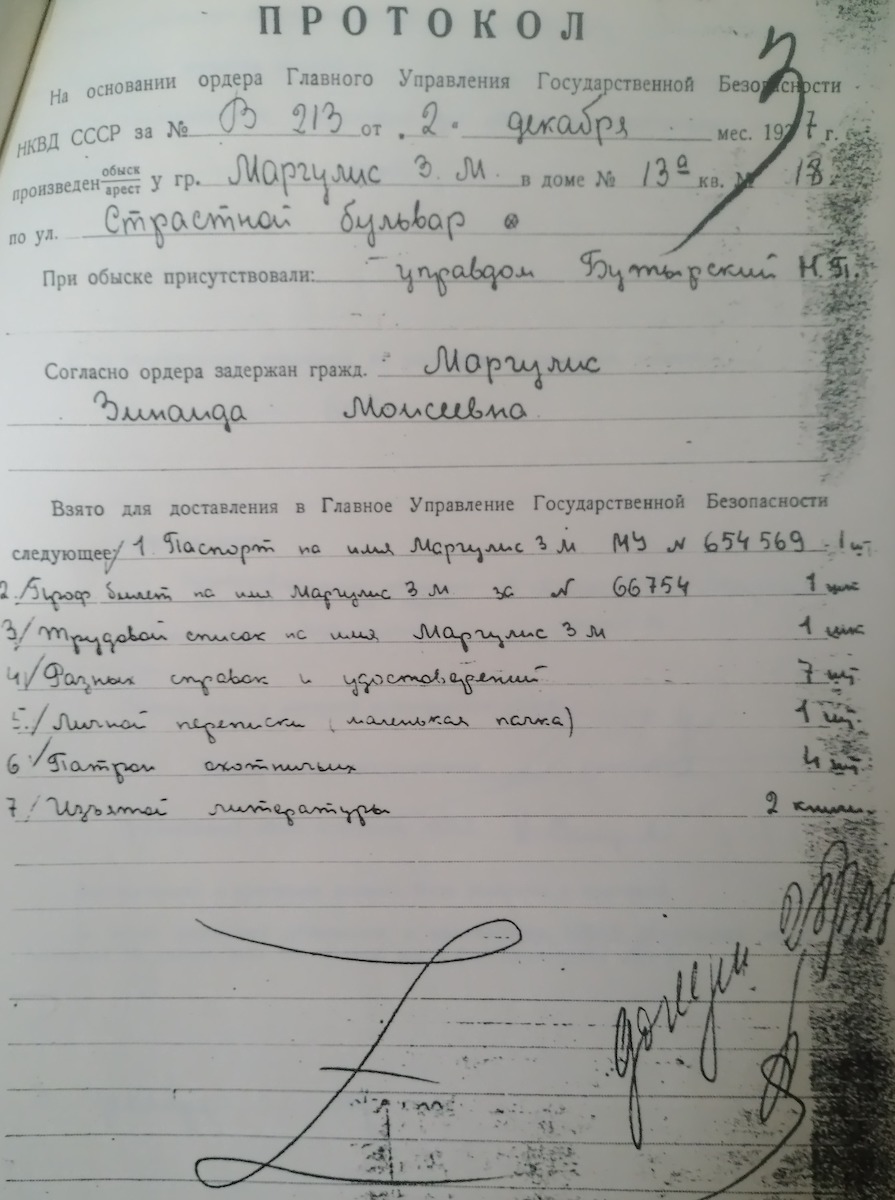 ПРОТОКОЛ
3
На основании ордера Главного Управления Государственной Безопасности
НКВД СССР за № В 213 от "2" декабря мес. 1937 г.
произведен обыск арест у гр. Маргулис З. М. в доме № 13а кв. № 18.
по ул. Страстной бульвар
При обыске присутствовали: управдом Бутырский Н.П.
Согласно ордера задержан гражд. Маргулис
Зинаида Моисеевна
Взято для доставления в Главное Управление Государственной Безопасности
следующее: 1. Паспорт на имя Маргулис З М МУ № 654569 - 1 шт
2. Проф билет на имя Маргулис З М за № 66754 1 шт
3/ Трудовой список на имя Маргулис З М 1 шт
4/ Разных справок и удостоверений 7 шт
5/ Личной переписки (маленькая пачка) 1 шт.
6/ Патрон охотничьих 4 шт.
7/ Изъятой литературы 2 книги.